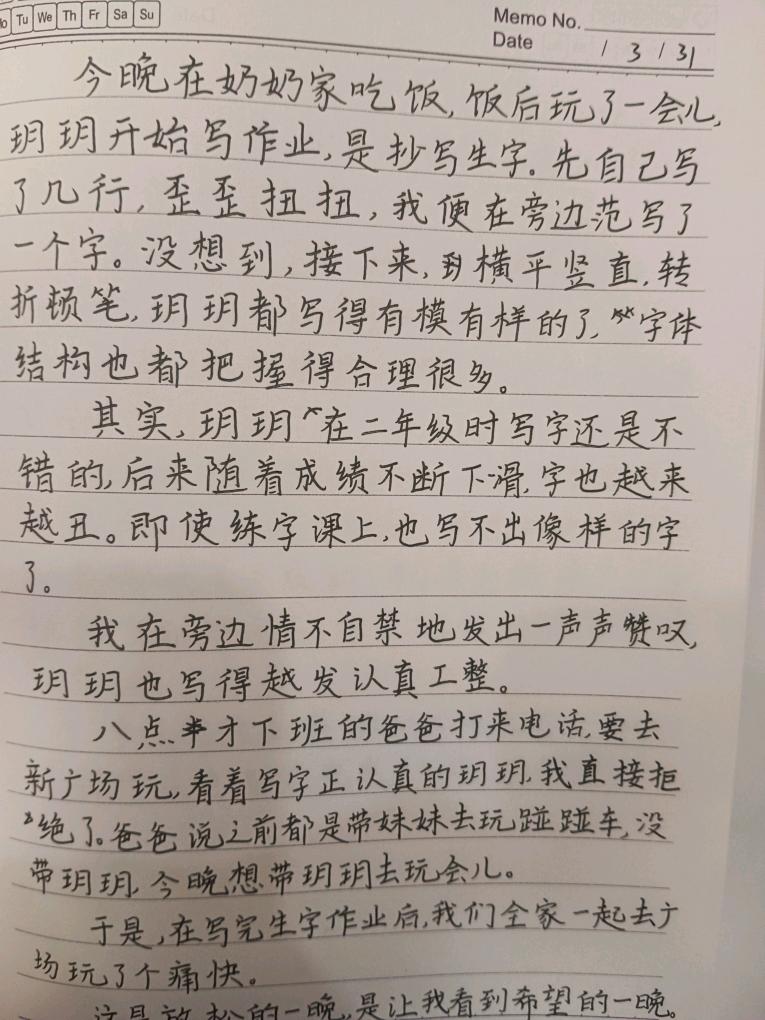 Mo Tu We Th Fr Sa Su
Memo No.
Date / 3 / 31
今晚在奶奶家吃饭,饭后玩了一会儿,
玥玥开始写作业,是抄写生字。先自己写
了几行,歪歪扭扭,我便在旁边范写了
一个字。没想到,接下来,到横平竖直,转
折顿笔,玥玥都写得有模有样的了,字体
结构也都把握得合理很多。
其实,玥玥在二年级时写字还是不
错的,后来随着成绩不断下滑,字也越来
越丑。即使练字课上,也写不出像样的字
了。
我在旁边情不自禁地发出一声声赞叹,
玥玥也写得越发认真工整。
八点半才下班的爸爸打来电话,要去
新广场玩,看着写字正认真的玥玥,我直接拒
绝了。爸爸说之前都是带妹妹去玩踫踫车,没
带玥玥,今晚想带玥玥去玩会儿。
于是,在写完生字作业后,我们全家一起去广
场玩了个痛快。
这是放松的一晚,是让我看到希望的一晚。